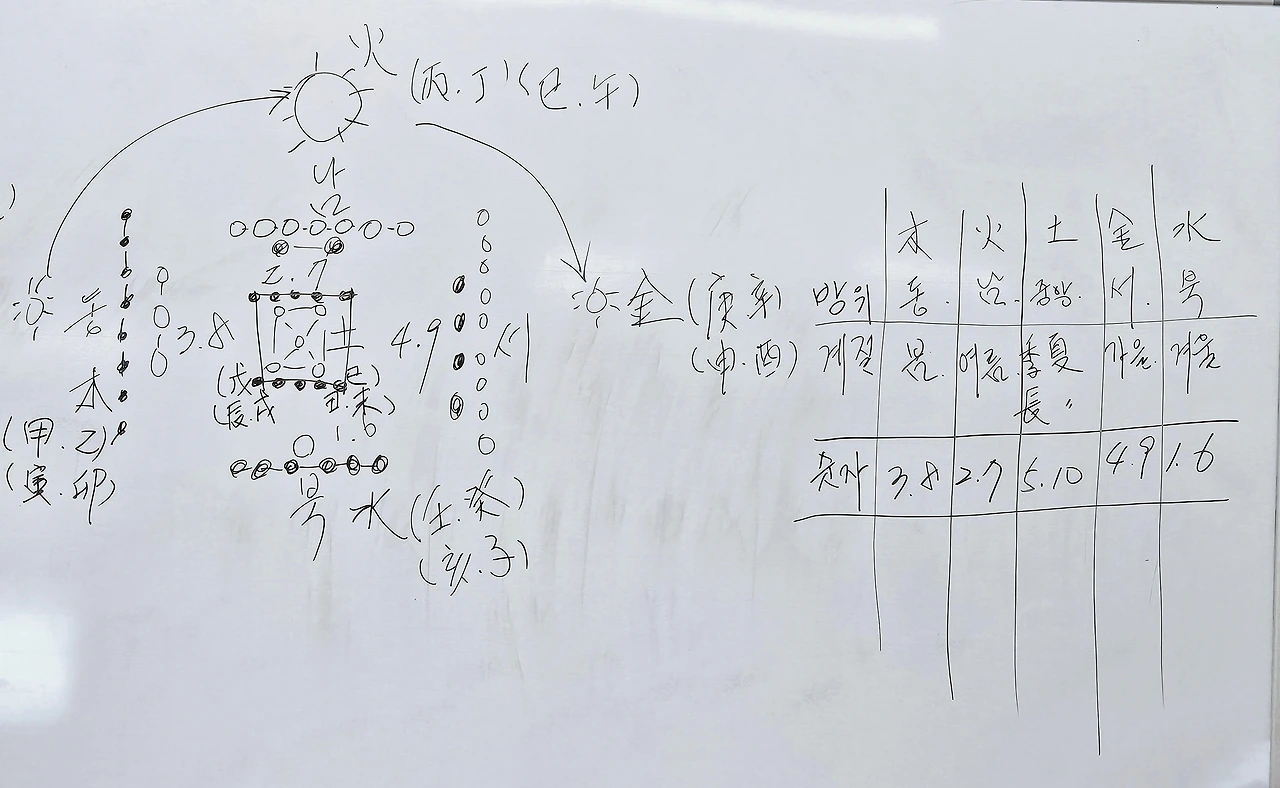 火 (丙.丁)(巳.午)
남
2.7
동
3.8
土
4.9
서
金 (庚.辛)
(申.酉)
木
(甲.乙)
(寅.卯)
(戊 己)
(辰.戌 丑.未)
1.6
북 水 (壬.癸)
(亥.子)
木 火 土 金 水
방위 동. 남. 중앙. 서. 북
계절 봄. 여름 季夏 가을 겨울
長〃
숫자 3.8 2.7 5.10 4.9 1.6